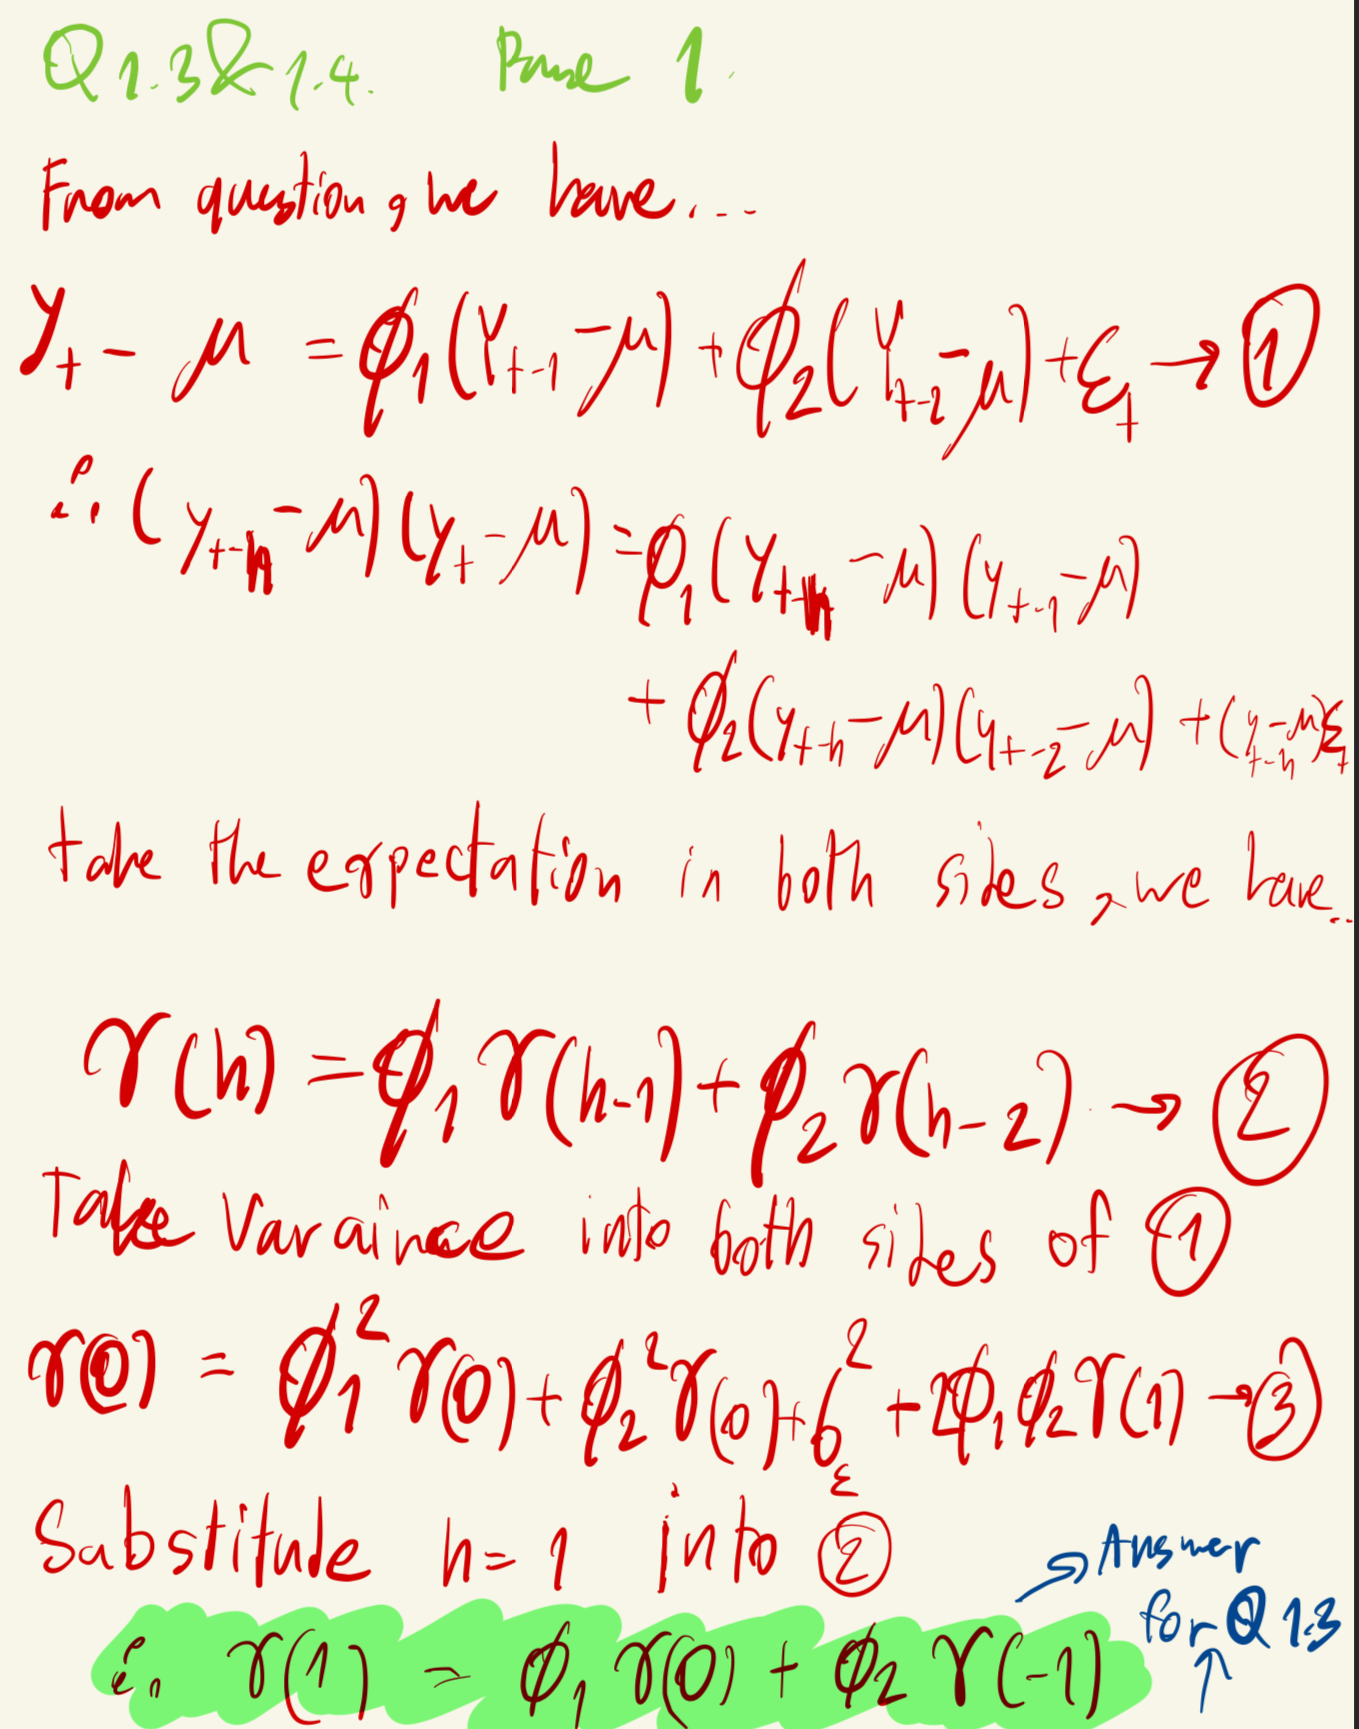 Q1.3&1.4. Pause 1.
From question, we have...
y_t - μ = ϕ_1(Y_{t-1} - μ) + ϕ_2(Y_{t-2} - μ) + ε_t → ①
i. (y_{t-h} - μ)(y_t - μ) = ϕ_1(y_{t-h} - μ)(y_{t-1} - μ)
+ ϕ_2(y_{t-h} - μ)(y_{t-2} - μ) + (y_{t-h} - μ)ε_t
take the expectation in both sides, we have..
γ(h) = ϕ_1 γ(h-1) + ϕ_2 γ(h-2) → ②
Take Varaince into both sides of ①
γ(0) = ϕ_1^2 γ(0) + ϕ_2^2 γ(0) + σ_ε^2 + 2ϕ_1ϕ_2γ(1) → ③
Substitude h=1 into ②
→ Answer
for Q1.3
↑
i. γ(1) = ϕ_1 γ(0) + ϕ_2 γ(-1)